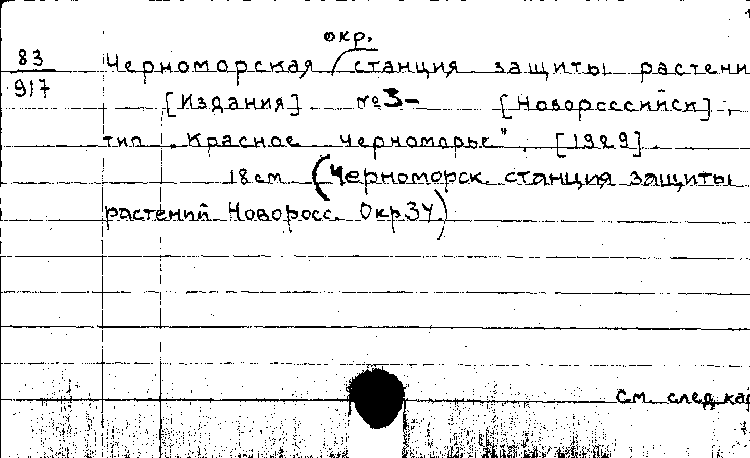 окр.
83 Черноморская станция защиты растени
917 [Издания] №3- [Новороссийск],
тип. "Красное черноморье", [1929].
18см (Черноморск. станция защиты
растений Новоросс. ОкрЗУ)
См. след. кар